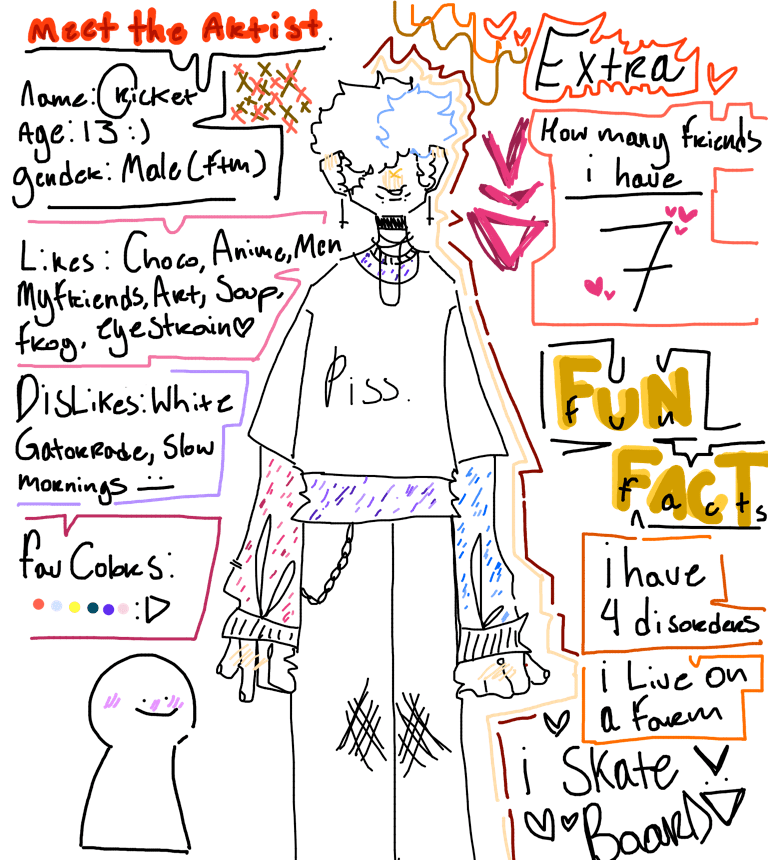 Meet the Artist.
name: Cricket
Age: 13 :)
gender: Male (ftm)
Likes: Choco, Anime, Men
My friends, Art, Soup,
frog, eyestrain♡
DisLikes: White
Gatorade, Slow
mornings
fav Colors:
Piss.
Extra
How many friends
i have
7
FUN
fun
FACT
facts
i have
4 disorders
i Live on
a farm
i Skate
Board